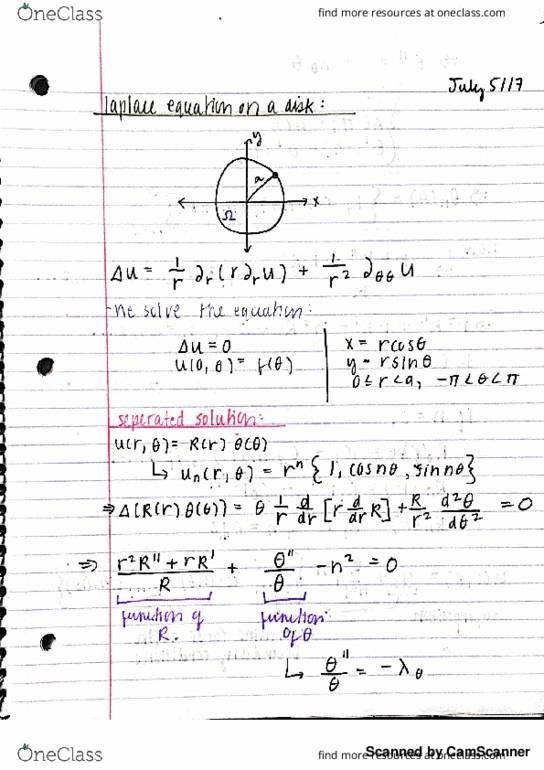 OneClass
find more resources at oneclass.com
July 5/17
laplace equation on a disk:
y
a
x
Ω
Δu = 1/r ∂r(r∂ru) + 1/r² ∂θθ u
we solve the equation:
Δu = 0
u(0, θ) = f(θ)
x = rcosθ
y = rsinθ
0 ≤ r < a, -π < θ < π
seperated solution:
u(r, θ) = R(r) θ(θ)
↳ un(r, θ) = rⁿ {1, cosnθ, sinnθ}
⇒ Δ(R(r) θ(θ)) = θ 1/r d/dr [r d/dr R] + R/r² d²θ/dθ² = 0
⇒ r²R'' + rR' / R + θ''/θ - n² = 0
function of R.
function of θ
↳ θ''/θ = -λθ
OneClass
find more resources at oneclass.com
Scanned by CamScanner